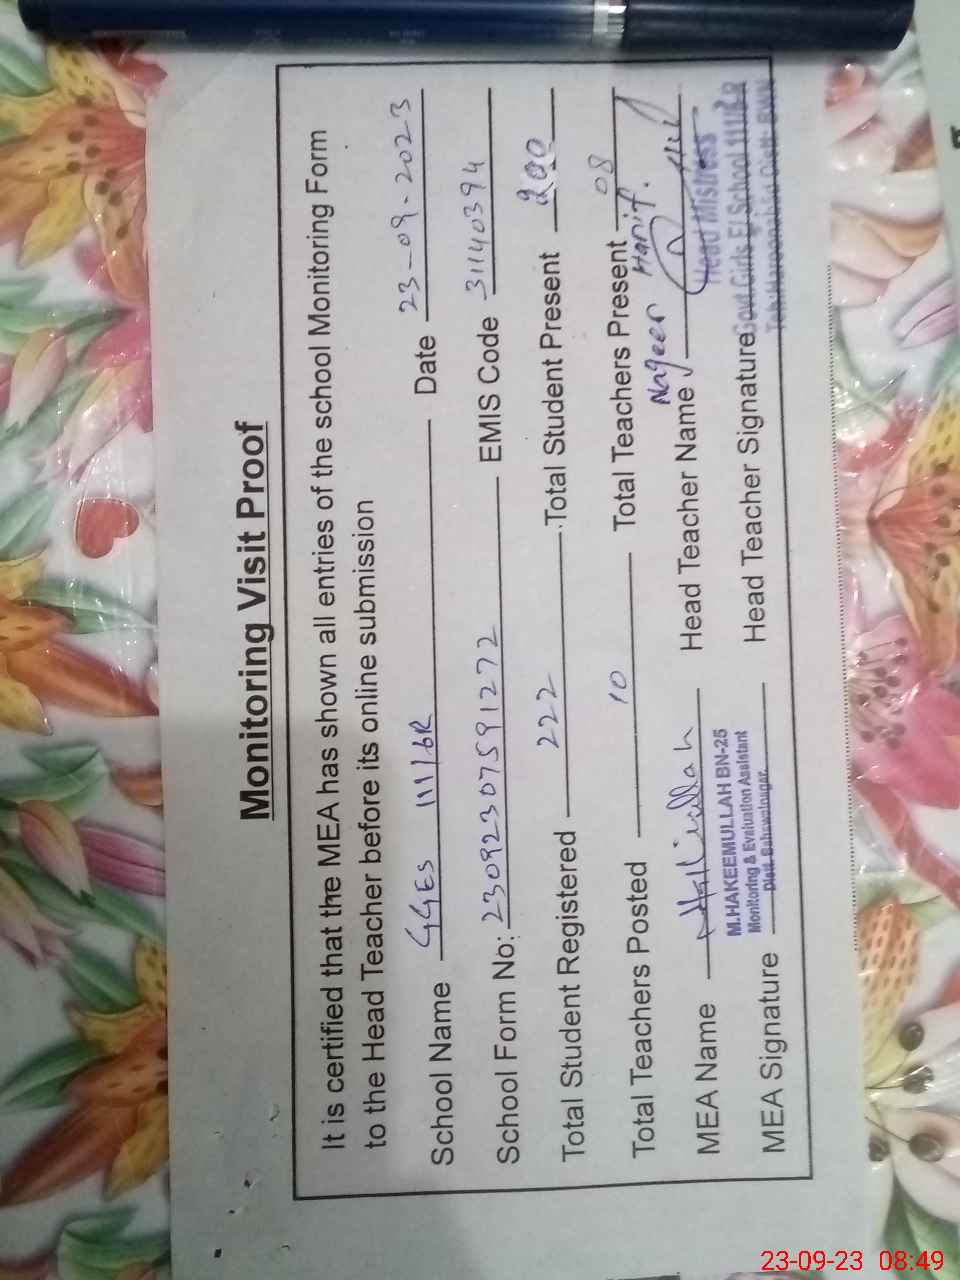 Monitoring Visit Proof
It is certified that the MEA has shown all entries of the school Monitoring Form
to the Head Teacher before its online submission
School Name GGES 111/6R Date 23-09-2023
School Form No: 23092307591272 EMIS Code 31140394
Total Student Registered 222 Total Student Present 200
Total Teachers Posted 10 Total Teachers Present 08
MEA Name Head Teacher Name Hanif.
M.HAKEEMULLAH BN-25
Monitoring & Evaluation Assistant
Distt. Bahawalnagar
Head Mistress
Govt. Girls E/ School 111/6.R
MEA Signature Head Teacher Signature
23-09-23 08:49